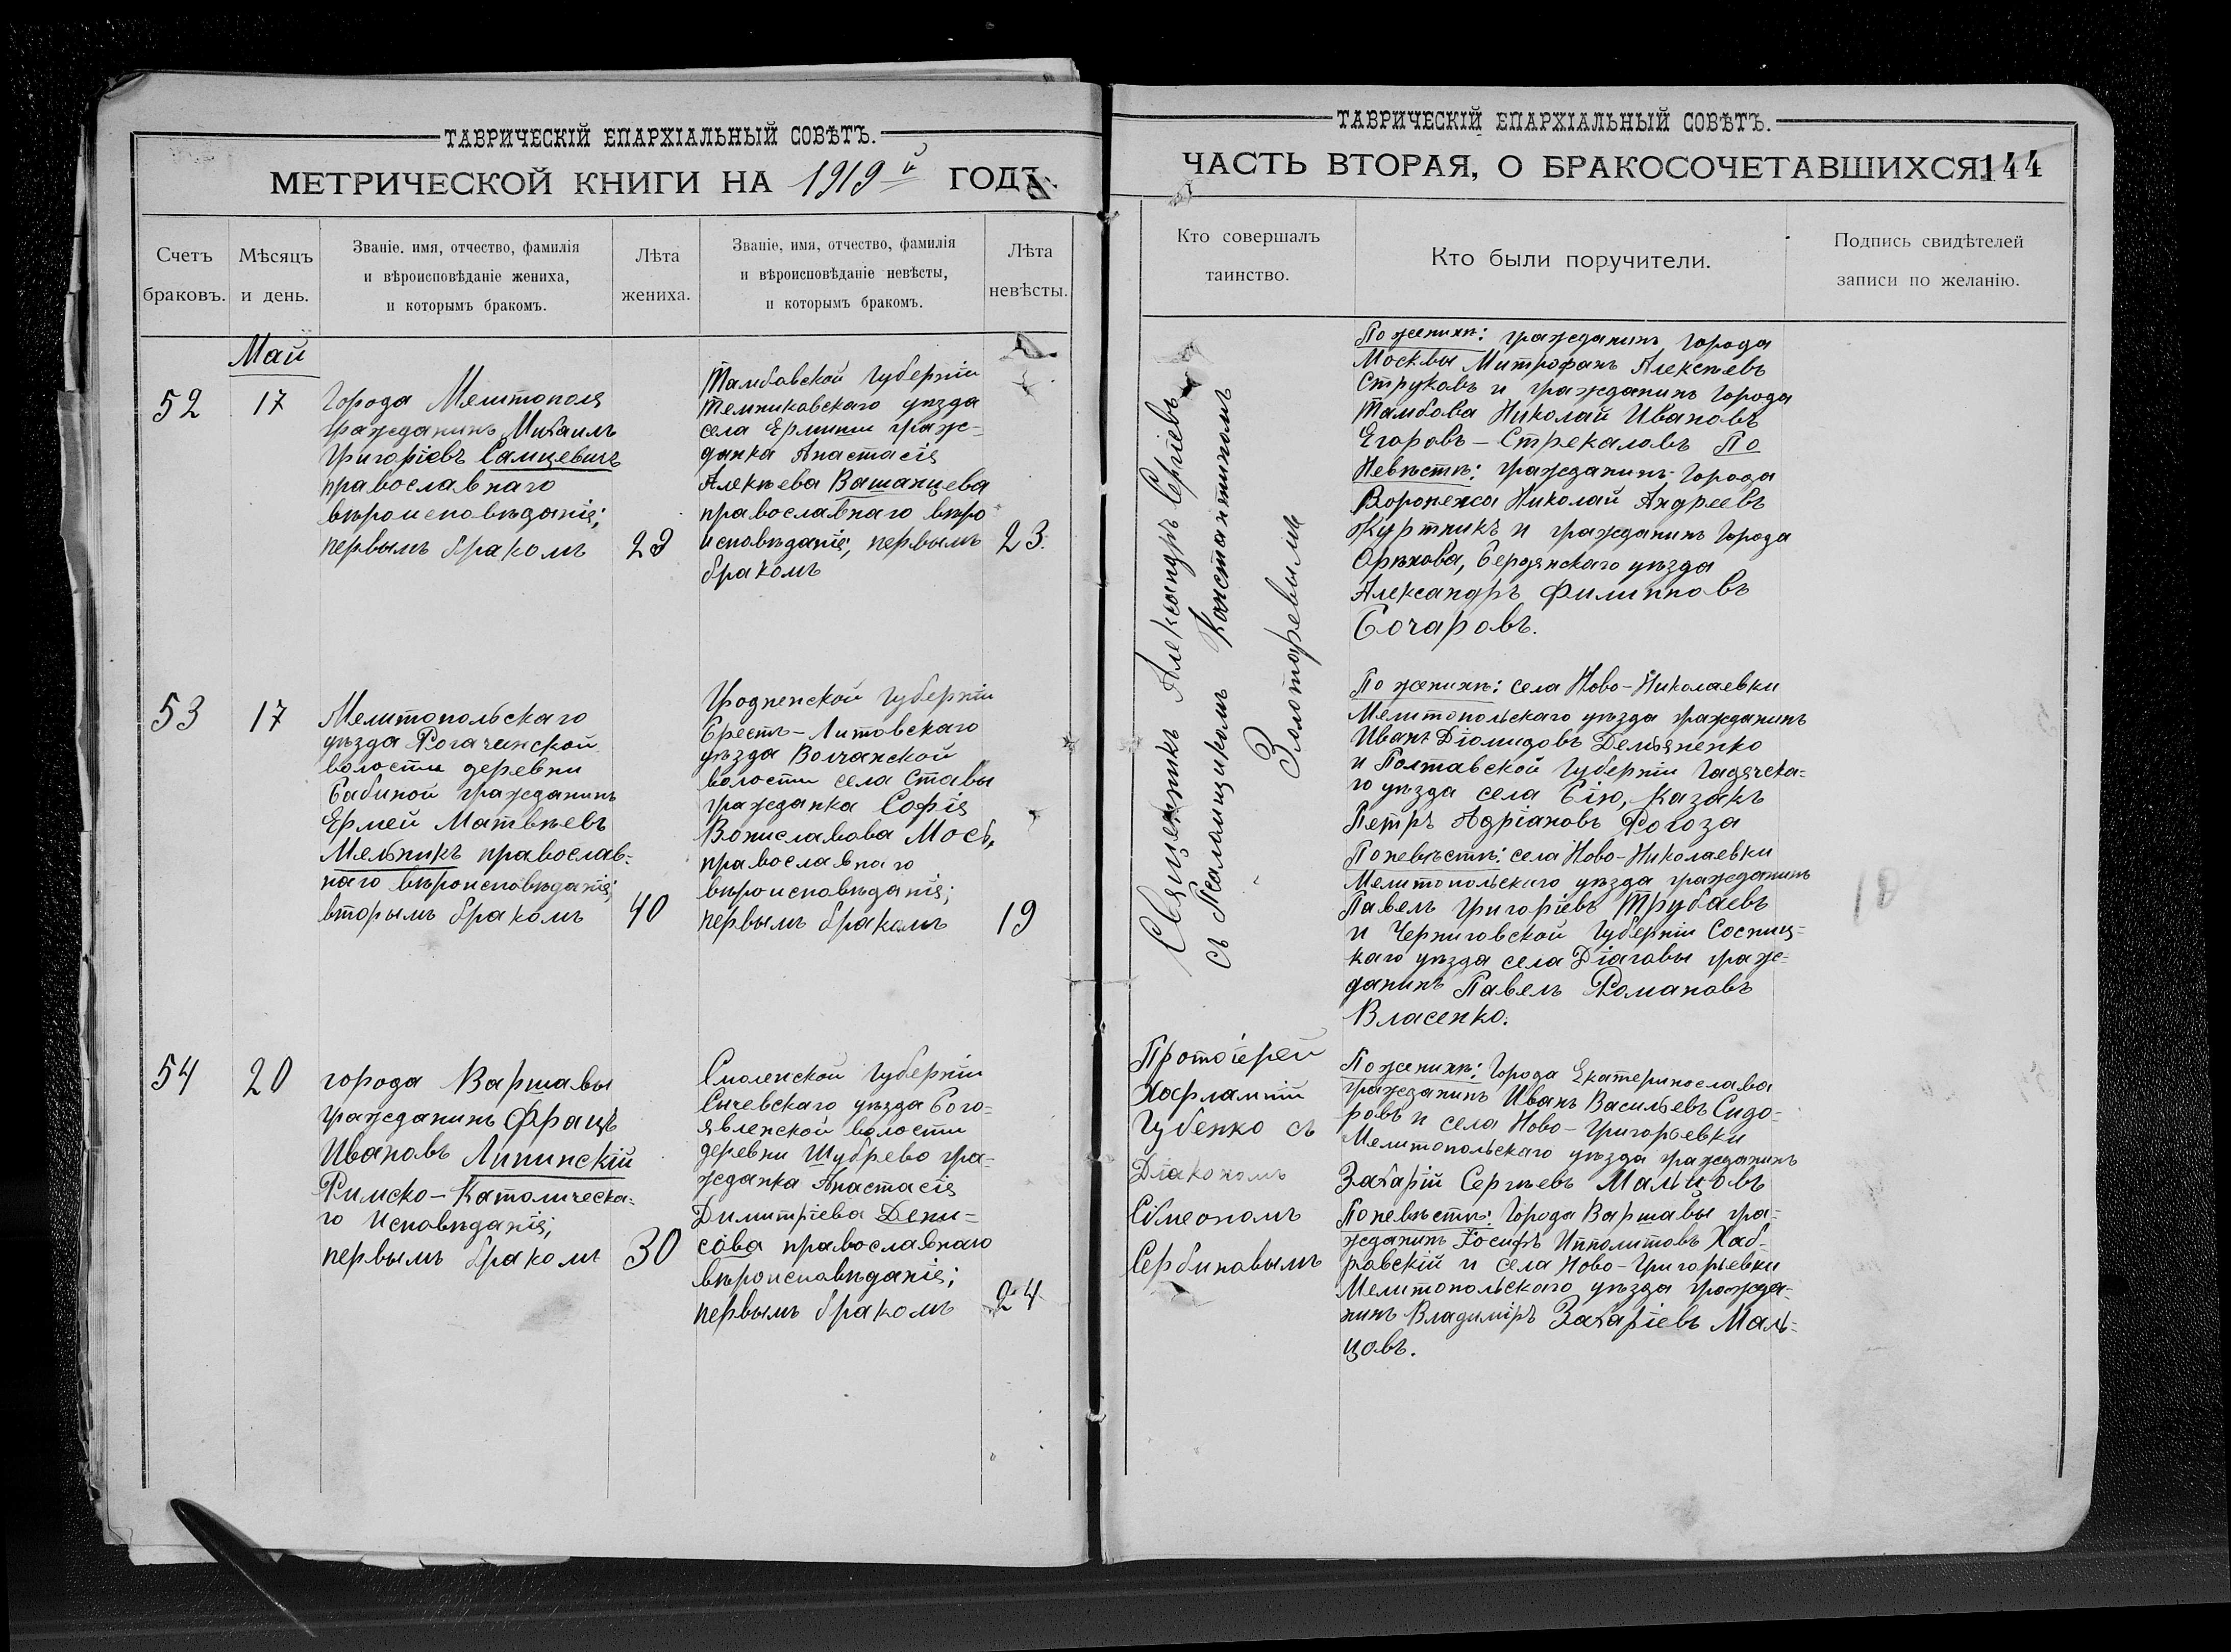 ТАВРИЧЕСКІЙ ЕПАРХІАЛЬНЫЙ СОВѢТЪ.
МЕТРИЧЕСКОЙ КНИГИ НА 1919й ГОДЪ.
Счетъ
браковъ.
Мѣсяцъ
и день.
Званіе, имя, отчество, фамилія
и вѣроисповѣданіе жениха,
и которымъ бракомъ.
Лѣта
жениха.
Званіе, имя, отчество, фамилія
и вѣроисповѣданіе невѣсты,
и которымъ бракомъ.
Лѣта
невѣсты.
Май
52
17
Города Мелитополя
гражданинъ Михаилъ
Григоріевъ Самцевичъ
православнаго
вѣроисповѣданія;
первымъ бракомъ
Тамбовской губерніи
Темниковскаго уѣзда
села Ермиши граж-
данка Анастасія
Алекѣева Вашанцева
православнаго вѣро
исповѣданія, первымъ
бракомъ
23.
53
17
Мелитопольскаго
уѣзда Рогачинской
волости деревни
Бабиной гражданинъ
Ермей Матвѣевъ
Мельникъ православ-
наго вѣроисповѣданія;
вторымъ бракомъ
40
Гродненской губерніи
Брестъ-Литовскаго
уѣзда Волчанской
волости села Ставы
гражданка Софія
Вониславова Мось,
православнаго
вѣроисповѣданія;
первымъ бракомъ
19
54
20
города Варшавы
гражданинъ Францъ
Ивановъ Липинскій
Римско-Католическа-
го исповѣданія;
первымъ бракомъ
30
Смоленской губерніи
Сычевскаго уѣзда Бого-
явленской волости
деревни Шубрево гра-
жданка Анастасія
Димитріева Дени-
сова православнаго
вѣроисповѣданія;
первымъ бракомъ
24
ТАВРИЧЕСКІЙ ЕПАРХІАЛЬНЫЙ СОВѢТЪ.
ЧАСТЬ ВТОРАЯ, О БРАКОСОЧЕТАВШИХСЯ. 144
Кто совершалъ
таинство.
Кто были поручители.
Подпись свидѣтелей
записи по желанію.
Священникъ Александръ Сергіевъ
съ Псаломщикомъ Константиномъ
Золоторевымъ
По женихѣ: гражданинъ города
Москвы Митрофанъ Алексѣевъ
Струковъ и гражданинъ города
Тамбова Николай Ивановъ
Егоровъ-Стрекаловъ По
Невѣстѣ: гражданинъ города
Воронежа Николай Андреевъ
Журтникъ и гражданинъ города
Орѣхова, Бердянскаго уѣзда
Александръ Филипповъ
Бочаровъ.
По женихѣ: села Ново-Николаевки
Мелитопольскаго уѣзда гражданинъ
Иванъ Діомидовъ Демьяненко
и Полтавской губерніи Гадячска-
го уѣзда села Бію, казакъ
Петръ Адріановъ Рогоза
По невѣстѣ: села Ново-Николаевки
Мелитопольскаго уѣзда гражданинъ
Павелъ Григоріевъ Трубаевъ
и Черниговской губерніи Сосниц-
каго уѣзда села Дяговы граж-
данинъ Павелъ Романовъ
Власенко.
Протоіерей
Харлампій
Губенко съ
Діакономъ
Сѵмеономъ
Сербиновымъ
По женихѣ: города Екатеринослава
гражданинъ Иванъ Васильевъ Сидо-
ровъ и села Ново-Григорьевки
Мелитопольскаго уѣзда гражданинъ
Захарій Сергѣевъ Мальцовъ
По невѣстѣ: города Варшавы гра-
жданинъ Іосифъ Ипполитовъ Хаб-
ровскій и села Ново-Григорьевки
Мелитопольскаго уѣзда гражда-
нинъ Владиміръ Захаріевъ Маль-
цовъ.